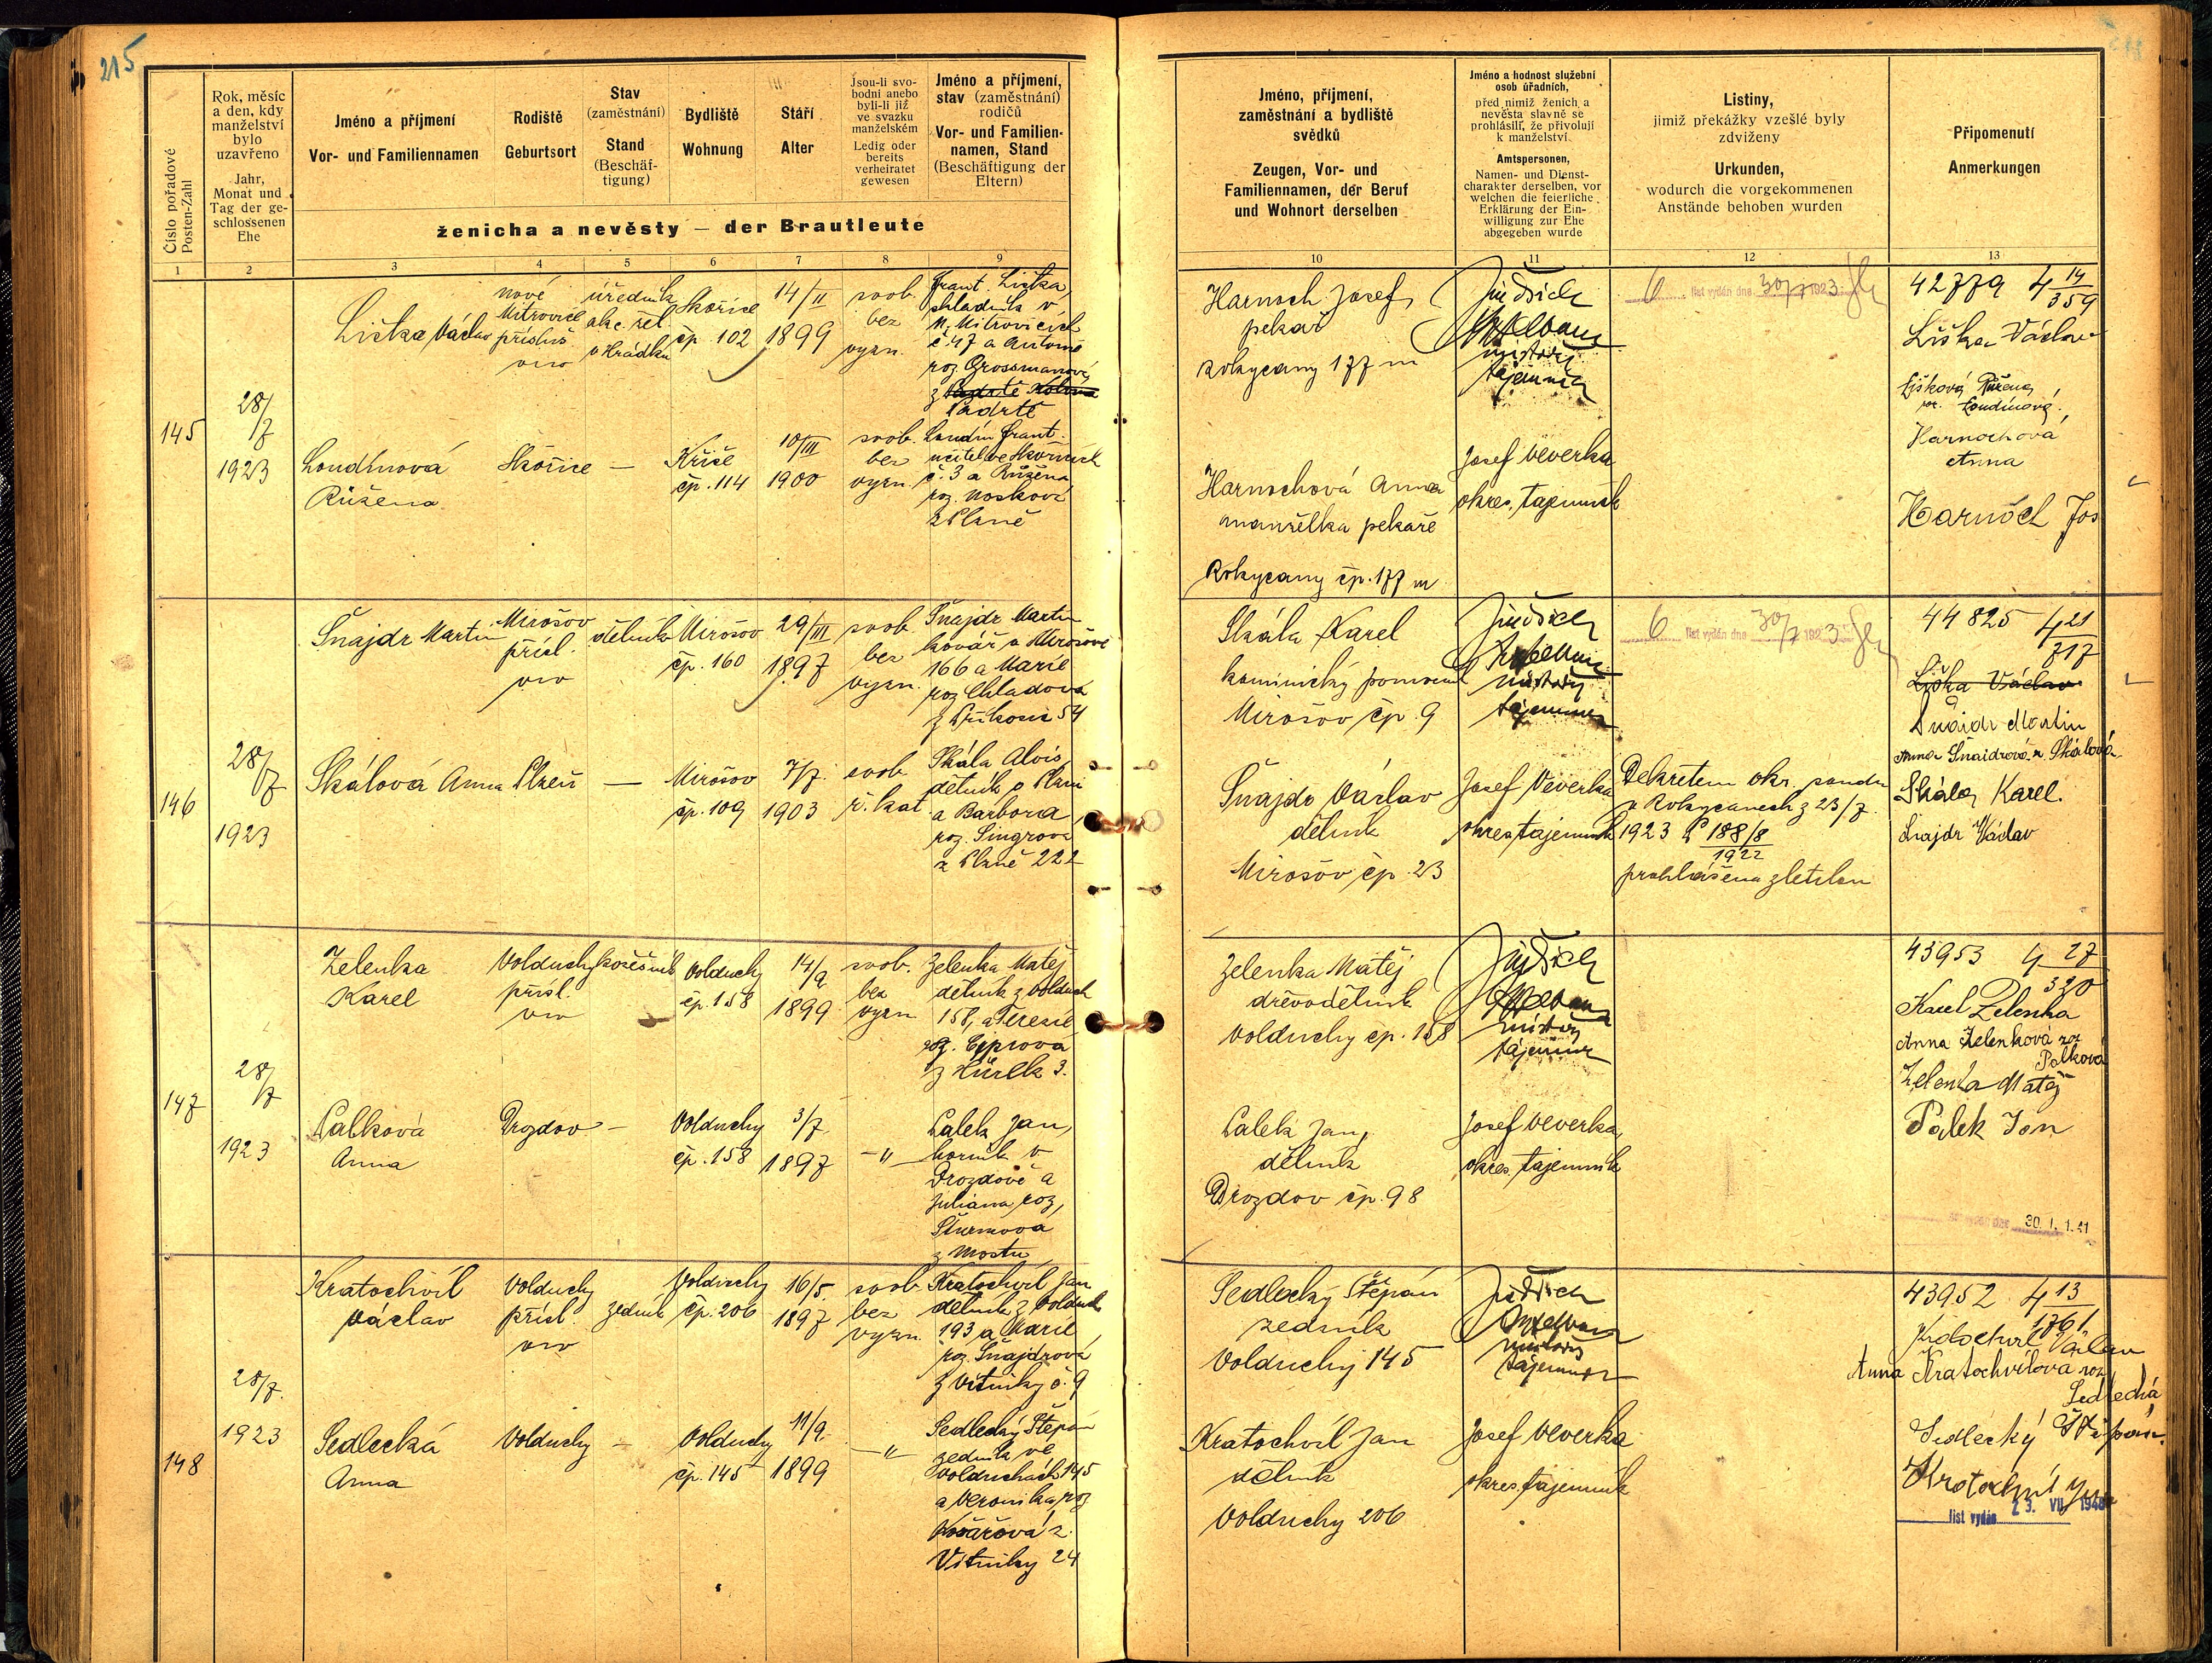 215
Číslo pořadové
Posten-Zahl
Rok, měsíc
a den, kdy
manželství
bylo
uzavřeno
Jahr,
Monat und
Tag der ge-
schlossenen
Ehe
Jméno a příjmení
Vor- und Familiennamen
Rodiště
Geburtsort
Stav
(zaměstnání)
Stand
(Beschäf-
tigung)
Bydliště
Wohnung
Stáří
Alter
Jsou-li svo-
bodni anebo
byli-li již
ve svazku
manželském
Ledig oder
bereits
verheiratet
gewesen
Jméno a příjmení,
stav (zaměstnání)
rodičů
Vor- und Familien-
namen, Stand
(Beschäftigung der
Eltern)
ženicha a nevěsty — der Brautleute
1 2 3 4 5 6 7 8 9
Jméno, příjmení,
zaměstnání a bydliště
svědků
Zeugen, Vor- und
Familiennamen, der Beruf
und Wohnort derselben
Jméno a hodnost služební
osob úřadních,
před nimiž ženich a
nevěsta slavně se
prohlásili, že přivolují
k manželství
Amtspersonen,
Namen- und Dienst-
charakter derselben, vor
welchen die feierliche
Erklärung der Ein-
willigung zur Ehe
abgegeben wurde
Listiny,
jimiž překážky vzešlé byly
zdviženy
Urkunden,
wodurch die vorgekommenen
Anstände behoben wurden
Připomenutí
Anmerkungen
10 11 12 13
145
28/
/7
1923
Liška Václav
nové
Mitrovice
přísluš.
úředník
v Hrádku
Skořice
čp. 102
14/II
1899
svob.
bez
vyzn.
Frant. Liška,
skladník v
N. Mitrovicích
č. 47 a Antonie
roz. Grossmanové
z
Padrtě
Londinová
Růžena
Skořice
—
Kříše
čp. 114
10/III
1900
svob.
bez
vyzn.
Londin Frant.
učitel ve Skořicích
č. 3 a Růžena
roz. Nosková
z Plzně
Harnoch Josef,
pekař
Rokycany 177 m
Harnochová Anna
manželka pekaře
Rokycany čp. 177 m
Jindřich
místodrž.
tajemník
Josef Veverka
okres. tajemník
6 list vydán dne 30/7 1923
42779 4 14
359
Liška Václav
Lišková Růžena
roz. Londinová.
Harnochová
Anna
Harnoch Jos
146
28/
/7
1923
Šnajdr Martin
Mirošov
přísl.
dělník
Mirošov
čp. 160
29/III
1897
svob.
bez
vyzn.
Šnajdr Martin
kovář v Mirošově
166 a Marie
roz. Chladová
z Příkosic 54
Skálová Anna
Plzeň
—
Mirošov
čp. 109
7/7.
1903
svob.
ř. kat.
Skála Alois,
dělník v Plzni
a Barbora
roz. Singrova
z Plzně 222
Skála Karel
kominický pomocník
Mirošov čp. 9
Šnajdr Václav
dělník
Mirošov čp. 23
Jindřich
místodrž.
tajemník
Josef Veverka
okres. tajemník
6 list vydán dne 30/7 1923
Dekretem okr. soudu
v Rokycanech z 23/7.
1923 P 188/8
1922
prohlášena zletilou
44825 4 21
717
Liška Václav
Šnajdr Martin
Anna Šnaidrová r. Skálová
Skála Karel.
Šnajdr Václav
147
28/
/7
1923
Zelenka
Karel
Volduchy
přísl.
kožešník
Volduchy
čp. 158
14/9
1899
svob.
bez
vyzn
Zelenka Matěj
dělník z Volduch
158, a Terezie
roz. Ciprova
z Hůrek 3.
Palková
Anna
Drozdov
—
Volduchy
čp. 158
3/7
1897
—"—
Palek Jan,
horník v
Drozdově a
Juliana roz.
Šturmova
z Mostu
Zelenka Matěj
dřevodělník
Volduchy čp. 158
Palek Jan,
dělník
Drozdov čp. 98
Jindřich
místodrž.
tajemník
Josef Veverka,
okres. tajemník
43953 4 27
320
Karel Zelenka
Anna Zelenková roz
Palková
Zelenka Matěj
Palek Jan
30. I. 1.41
148
28/7.
1923
Kratochvíl
Václav
Volduchy
přísl.
zedník
Volduchy
čp. 206
16/5.
1897
svob.
bez
vyzn.
Kratochvíl Jan
dělník z Volduch
193 a Marie
roz. Šnajdrová
z Vitinky č. 9
Sedlecká
Anna
Volduchy
—
Volduchy
čp. 145
11/9.
1899
—"—
Sedlecký Štěpán
zedník ve
Volduchách 145
a Veronika, roz
Kovářová z
Vitinky 24
Sedlecký Štěpán
zedník
Volduchy 145
Kratochvíl Jan
dělník
Volduchy 206
Jindřich
místodrž.
tajemník
Josef Veverka
okres. tajemník
43952 4 13
1761
Kratochvíl Václav
Anna Kratochvílová roz
Sedlecká
Sedlecký Štěpán.
Kratochvíl Jan
list vydán 23. VII. 1940